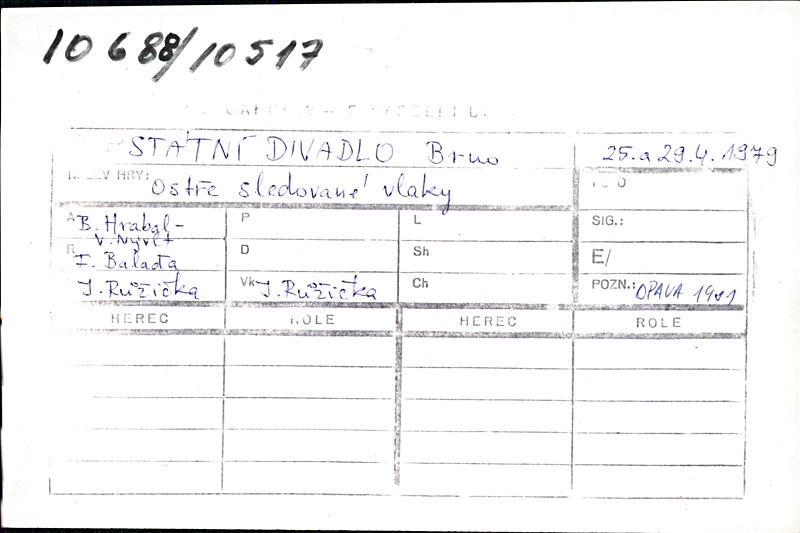 10688/10517
STÁTNÍ DIVADLO Brno
25. a 29.4. 1979
HRY: Ostře sledované vlaky
A B. Hrabal-
V. Nývlt
P
L
SIG.:
R F. Balaďa
D
Sh
E/
J. Růžička
Vk J. Růžička
Ch
POZN.: OPAVA 1981
HEREC
ROLE
HEREC
ROLE